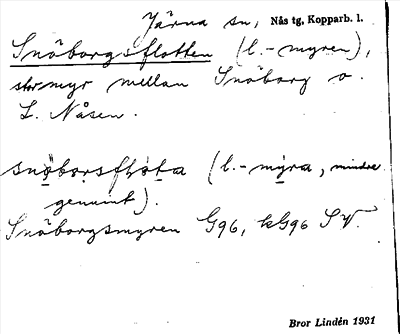 Järna sn, Nås tg, Kopparb. l.
Snöborgsflotten (l. -myren),
stor myr mellan Snöborg o.
L. Nåsen.
snöborsflota (l. -myra, mindre
genuint).
Snöborgsmyren G96, kG96 SV.
Bror Lindén 1931